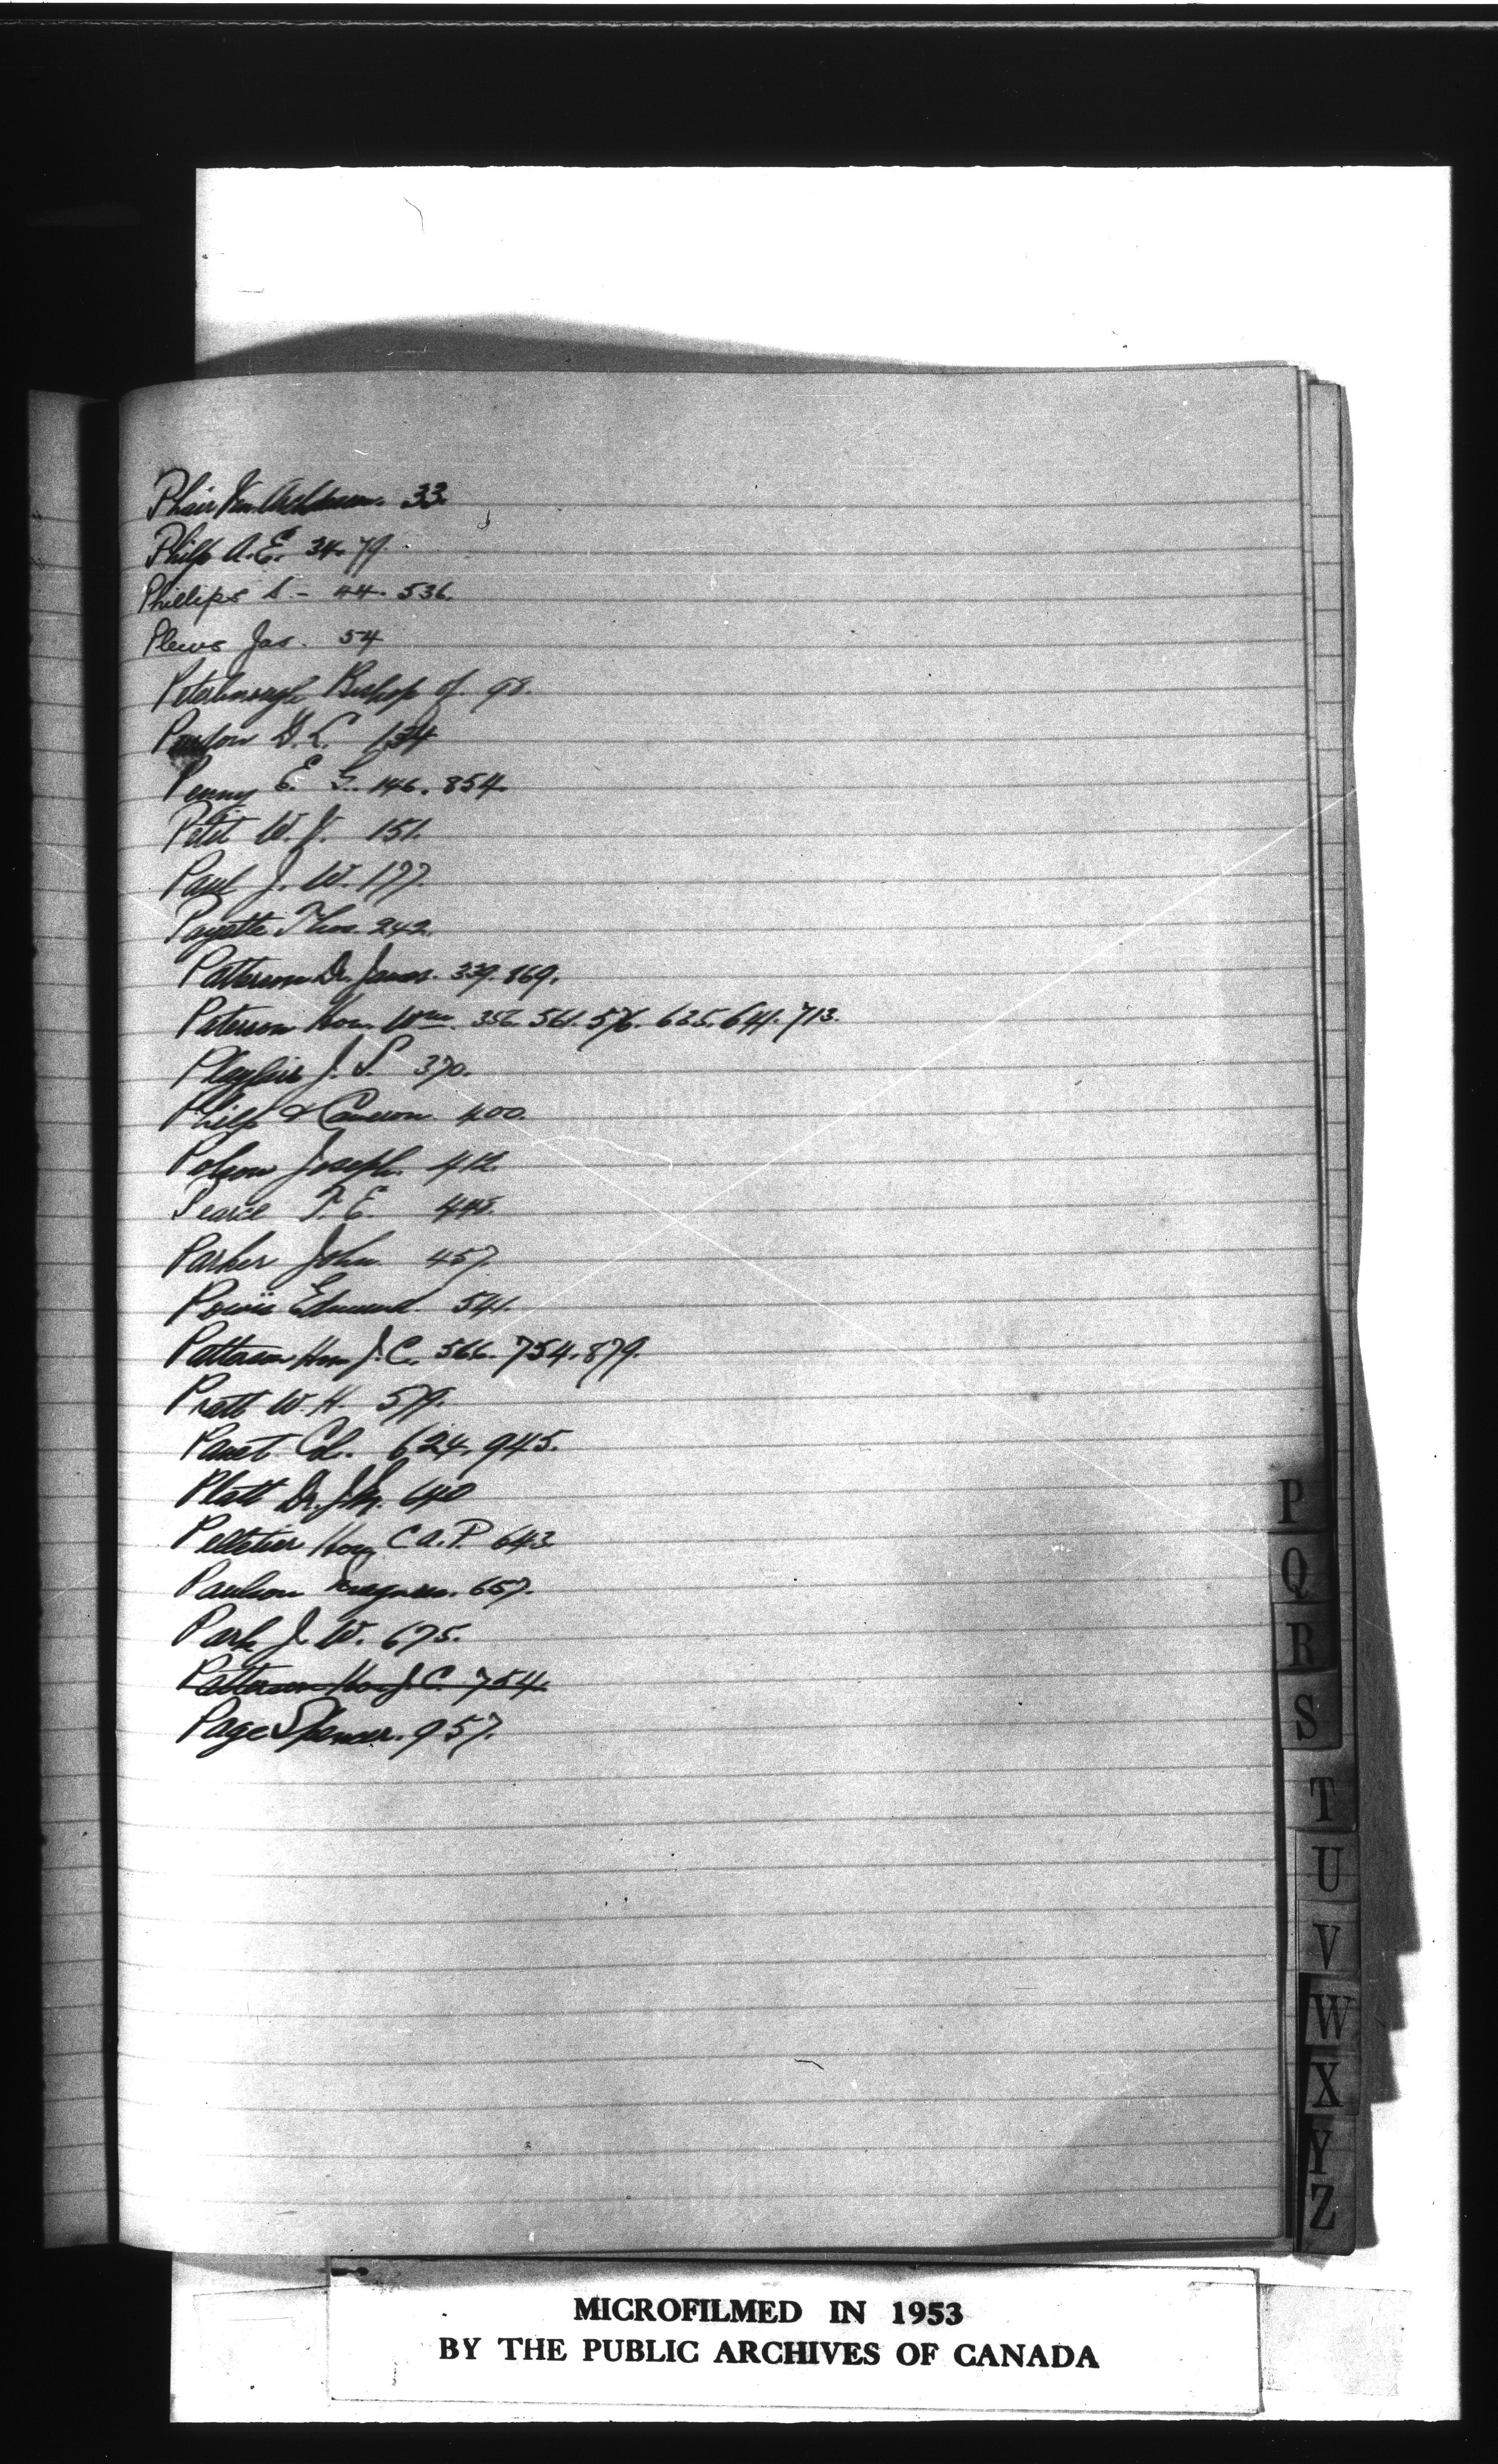 Phair Ven. Archdeacon. 33.
Philp A. E. 34. 79.
Phillips S - 44. 536.
Plews Jas. 54
Peterborough Bishop of. 98.
D. L. 134
Penny E. G. 146. 854.
Petit W. J. 151.
Paul J. W. 177.
Payette Thos. 242.
Patterson Dr. James. 339. 869.
Paterson Hon. Wm. 356. 561. 576. 625. 641. 713.
Playfair J. S. 370.
Philp & Cameron. 400.
Polson Joseph. 412.
Pearce T. E. 448.
Parker John. 457.
Edmund. 541.
Patterson Hon J. C. 566. 754. 879.
Pratt W. H. 579.
Panet Col. 624. 945.
Platt Dr. J. M. 640
Pelletier Hon C A. P. 643.
Paulson Magnus. 657.
Park J. W. 675.
Patterson Hon J. C. 754.
Page Spencer. 957.
P
Q
R
S
T
U
V
W
X
Y
Z
MICROFILMED IN 1953
BY THE PUBLIC ARCHIVES OF CANADA